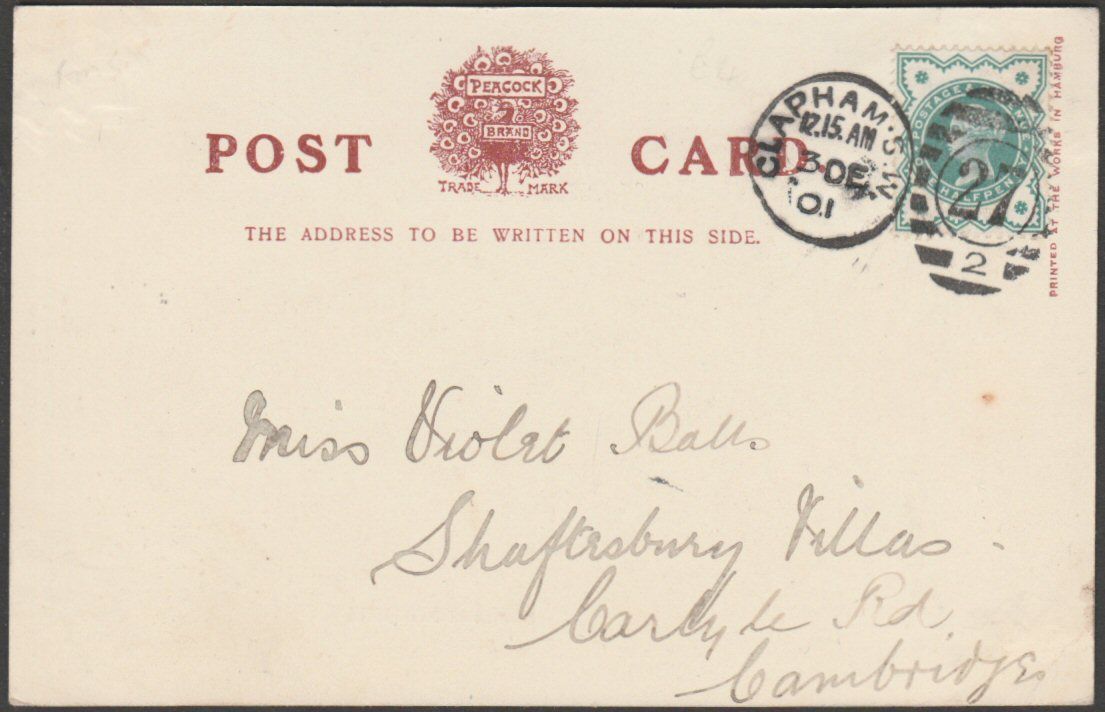 PEACOCK
BRAND
TRADE MARK
POST CARD.
THE ADDRESS TO BE WRITTEN ON THIS SIDE.
CLAPHAM·S.W
12.15.AM
3 DE
01
POSTAGE
HALFPENNY
27
2
PRINTED AT THE WORKS IN HAMBURG
Miss Violet Balls
Shaftesbury Villas
Carlyle Rd
Cambridge